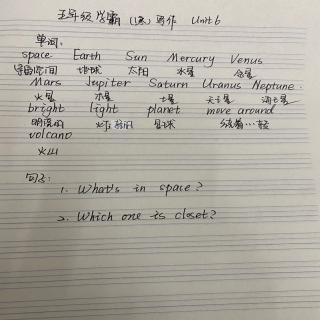 五年级 学霸 (1课) 写作 Unit 6
单词:
space Earth Sun Mercury Venus
宇宙空间 地球 太阳 水星 金星
Mars Jupiter Saturn Uranus Neptune
火星 木星 土星 天王星 海王星
bright light planet move around
明亮的 灯 星球 绕着…
volcano
火山
句子:
1. What's in space?
2. Which one is closet?